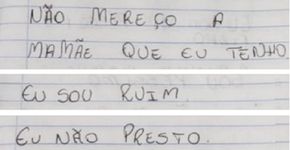 NÃO MEREÇO A
MAMÃE QUE EU TENHO
EU SOU RUIM
EU NÃO PRESTO.